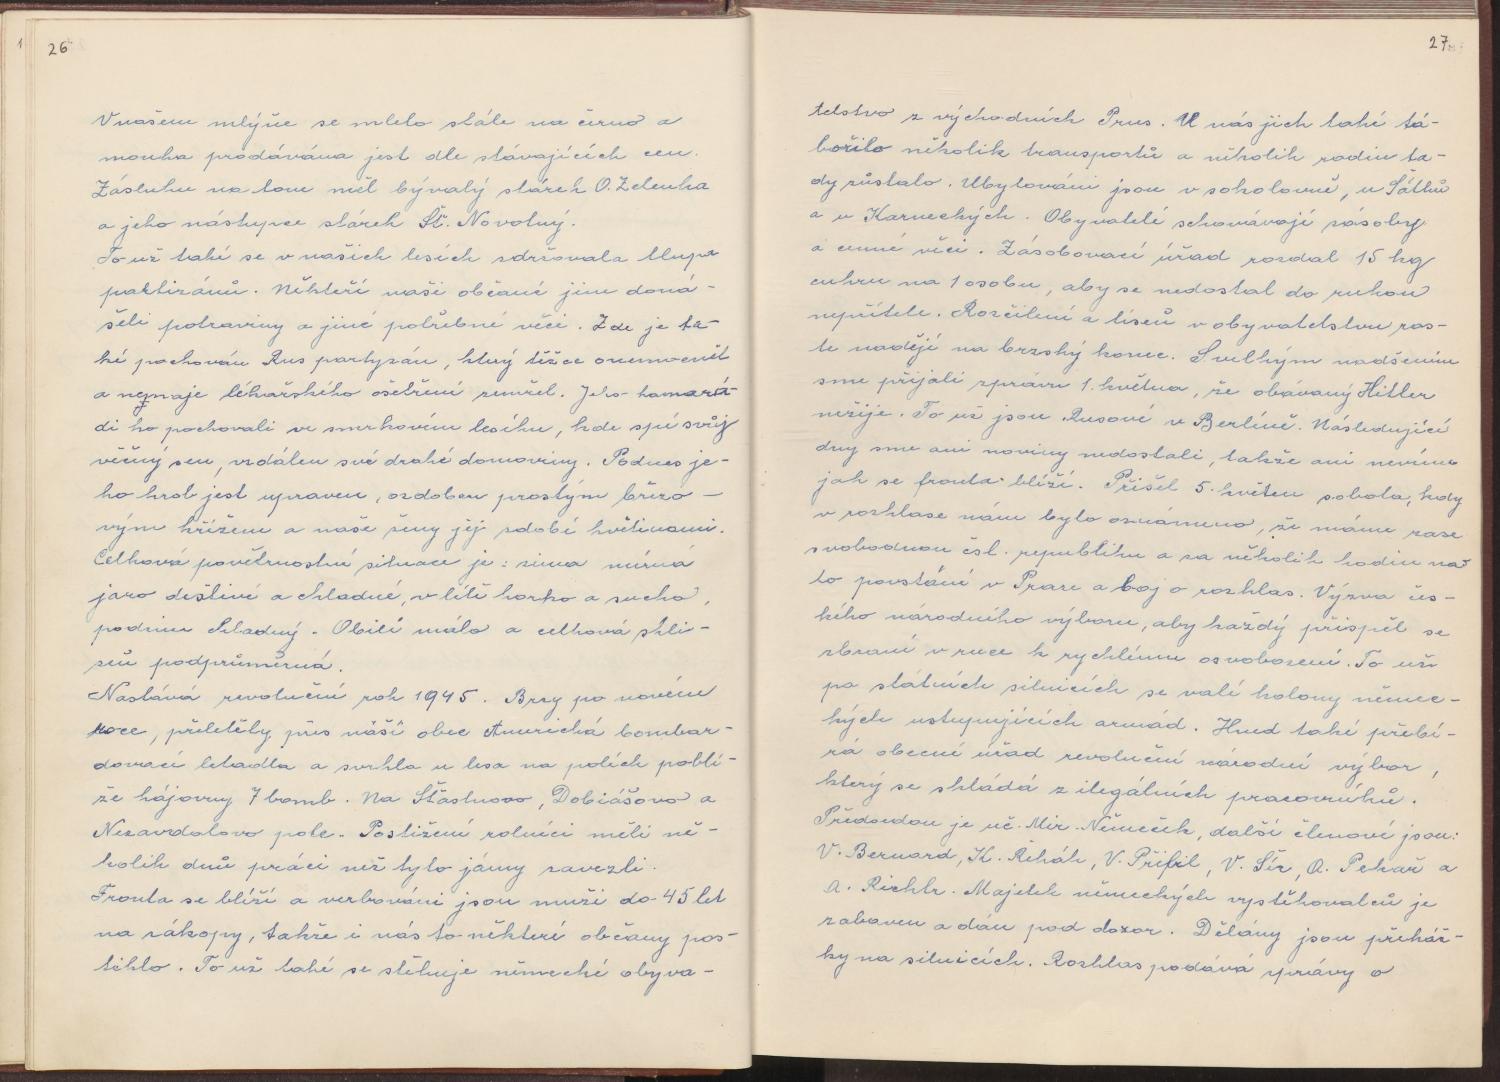 26
V našem mlýně se mlelo stále na černo a
mouka prodávána jest dle stávajících cen.
Zásluhu na tom měl bývalý stárek O. Zelenka
a jeho nástupce stárek Št. Novotný.
To už také se v našich lesích zdržovala tlupa
paktizánů. Někteří naši občané jim doná-
šeli potraviny a jiné potřebné věci. Zde je ta-
ké pochován Rus partyzán, který těžce onemocněl
a nemaje lékařského ošetření zemřel. Jeho kamará-
di ho pochovali ve smrkovém lesíku, kde spí svůj
věčný sen, vzdálen své drahé domoviny. Podnes je-
ho hrob jest upraven, ozdoben prostým březo-
vým křížem a naše ženy jej zdobí květinami.
Celková povětrnostní situace je: zima mírná
jaro deštivé a chladné, v létě horko a sucho,
podzim chladný. Obilí málo a celková skli-
zeň podprůměrná.
Nastává revoluční rok 1945. Brzy po novém
roce, přeletěly přes náší obec Americká bombar-
dovací letadla a svrhla u lesa na polích poblí-
že hájovny 7 bomb. Na Šťastnovo, Dobiášovo a
Nezavdalovo pole. Postižení rolníci měli ně-
kolik dnů práci než tyto jámy zavezli.
Fronta se blíží a verbováni jsou muži do 45 let
na zákopy, takže i nás to některé občany pos-
tihlo. To už také se stěhuje německé obyva-
27
telstvo z východních Prus. U nás jich také tá-
bořilo několik transportů a několik rodin ta-
dy zůstalo. Ubytováni jsou v sokolovně, u Šátků
a u Karneckých. Obyvatelé schovávají zásoby
a cenné věci. Zásobovací úřad rozdal 15 kg
cukru na 1 osobu, aby se nedostal do rukou
nepřítele. Rozčilení a tíseň v obyvatelstvu ros-
te nadějí na brzský konec. S velkým nadšením
sme přijali zprávu 1. května, že obávaný Hitler
nežije. To už jsou Rusové v Berlíně. Následující
dny sme ani noviny nedostali, takže ani nevíme
jak se fronta blíží. Přišel 5. květen sobota, kdy
v rozhlase nám bylo oznámeno, že máme zase
svobodnou čsl. republiku a za několik hodin na
to povstání v Praze a boj o rozhlas. Výzva čes-
kého národního výboru, aby každý přispěl se
zbraní v ruce k rychlému osvobození. To už
po státních silnicích se valí kolony němec-
kých ustupujících armád. Hned také přebí-
rá obecní úřad revoluční národní výbor,
který se skládá z ilegálních pracovníků.
Předsedou je uč. Mir. Němeček, další členové jsou:
V. Bernard, K. Řehák, V. Přibil, V. Šír, A. Pekař a
A. Richtr. Majetek německých vystěhovalců je
zabaven a dán pod dozor. Dělány jsou překáž-
ky na silnicích. Rozhlas podává zprávy o